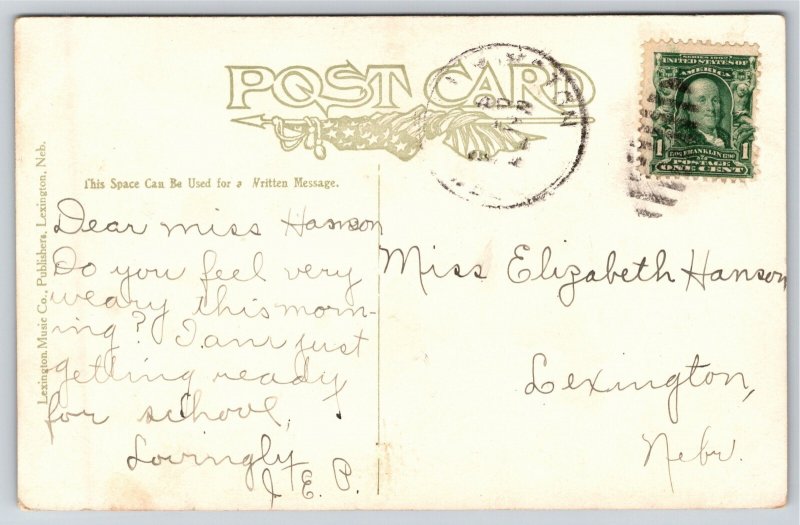 POST CARD
This Space Can Be Used for a Written Message.
Lexington Music Co., Publishers, Lexington, Neb.
Dear miss Hanson
Do you feel very
weary this morn-
ing? I am just
getting ready
for school,
Lovingly
J. E. P.
Miss Elizabeth Hanson
Lexington,
Nebr.
SERIES 1902
UNITED STATES OF
AMERICA
1 1
FRANKLIN
POSTAGE
ONE CENT